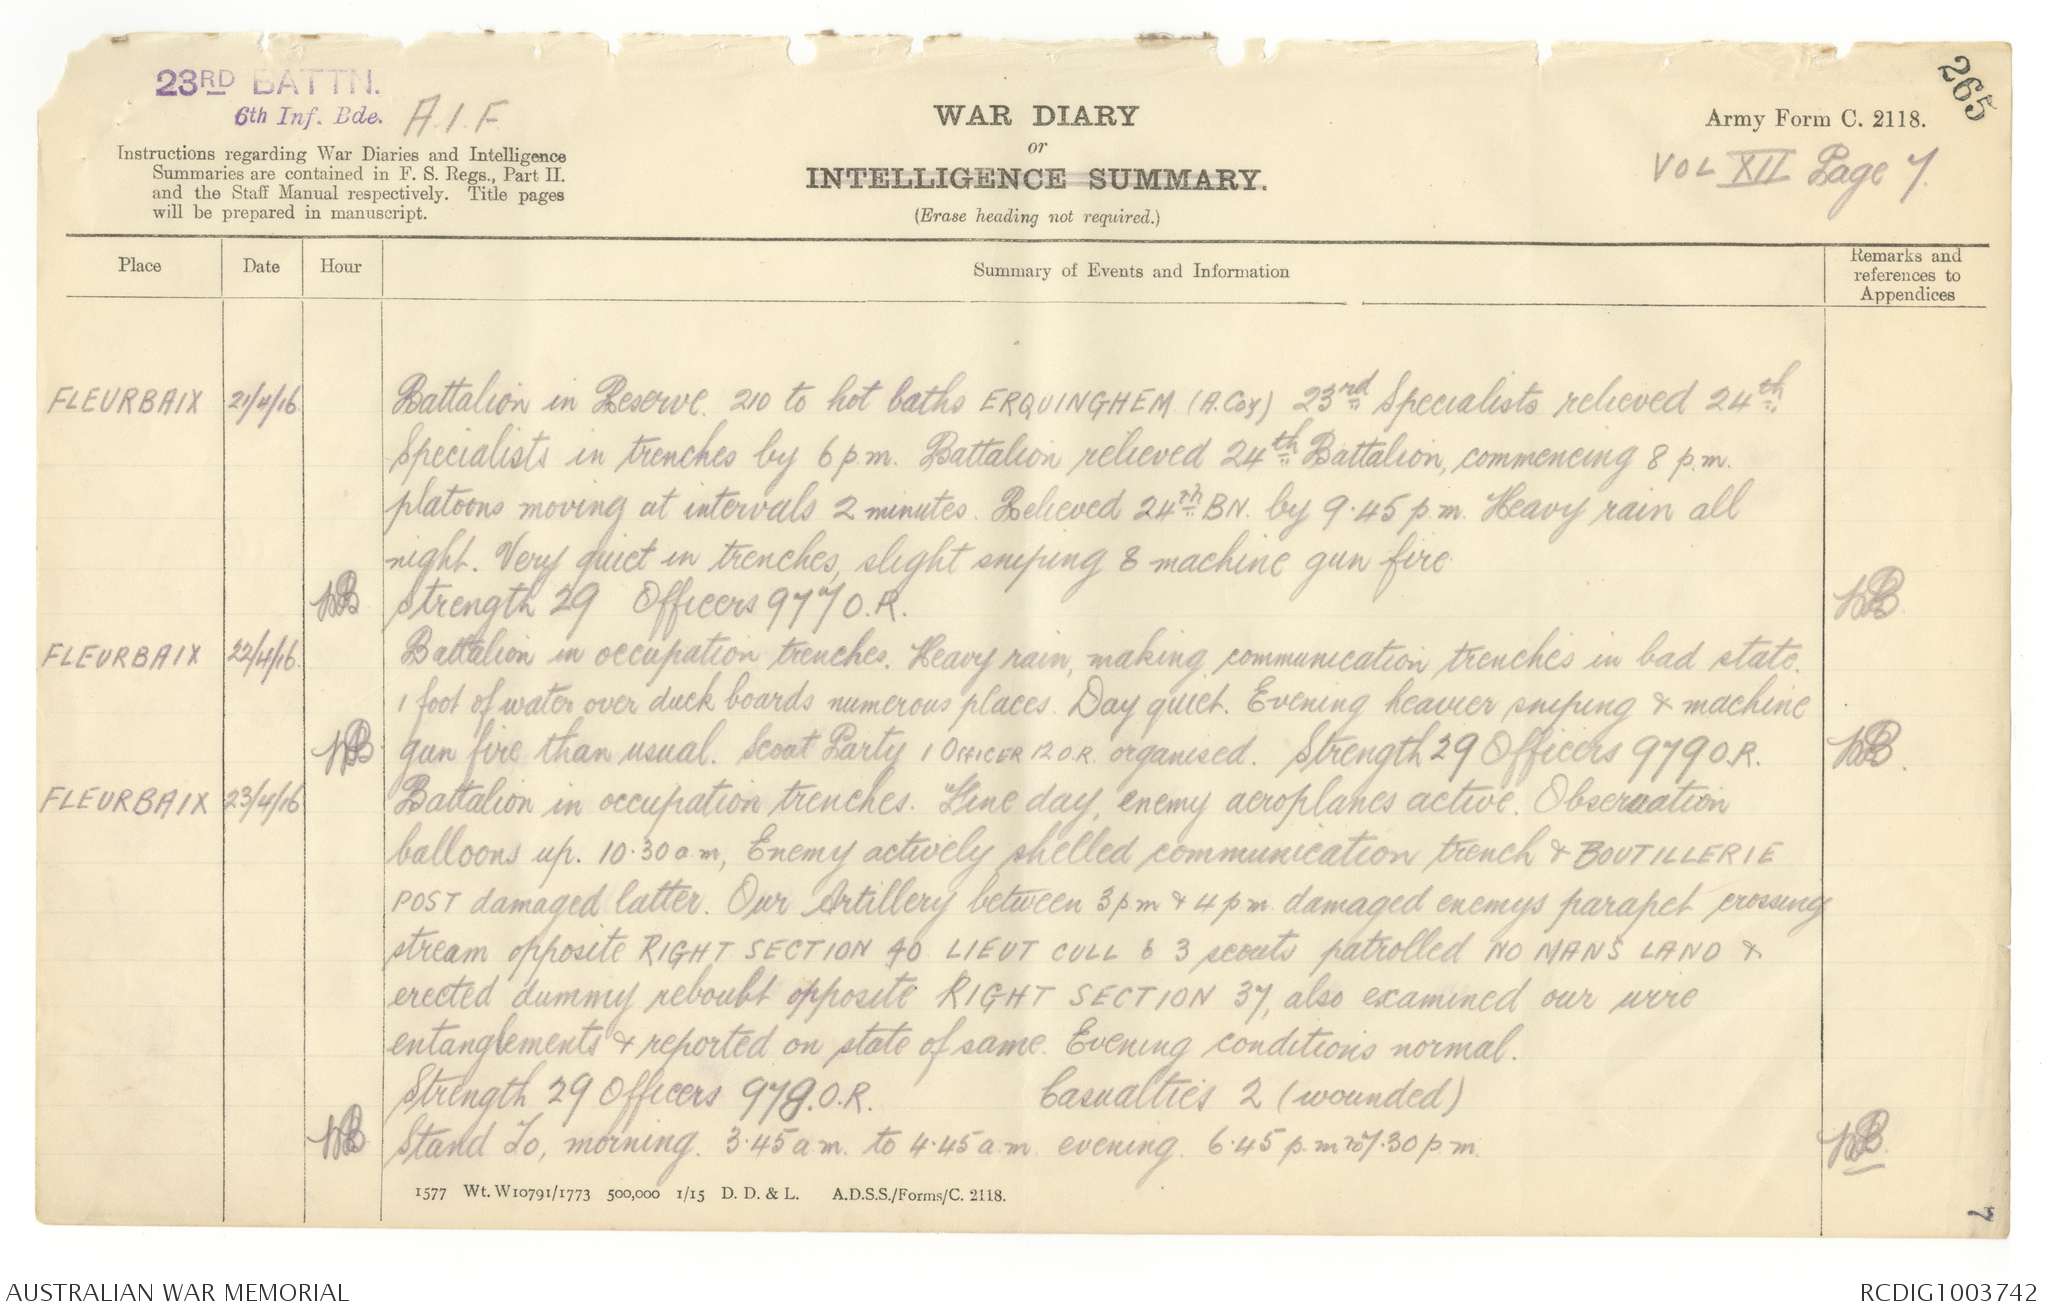 23RD BATTN.
6th Inf. Bde. A.I.F.
265
WAR DIARY
or
INTELLIGENCE SUMMARY.
(Erase heading not required.)
Army Form C. 2118.
VOL XII Page 7.
Instructions regarding War Diaries and Intelligence
Summaries are contained in F. S. Regs., Part II.
and the Staff Manual respectively. Title pages
will be prepared in manuscript.
Place Date Hour Summary of Events and Information Remarks and references to Appendices
FLEURBAIX 21/4/16 Battalion in Reserve. 210 to hot baths ERQUINGHEM (A.Coy) 23rd Specialists relieved 24th
Specialists in trenches by 6 p.m. Battalion relieved 24th Battalion, commencing 8 p.m.
platoons moving at intervals 2 minutes. Relieved 24th BN. by 9.45 p.m. Heavy rain all
night. Very quiet in trenches, slight sniping & machine gun fire
Strength 29 Officers 977 O.R.
FLEURBAIX 22/4/16 Battalion in occupation trenches. Heavy rain, making communication trenches in bad state.
1 foot of water over duck boards numerous places. Day quiet. Evening heavier sniping & machine
gun fire than usual. Scout Party 1 OFFICER 12 O.R. organised. Strength 29 Officers 979 O.R.
FLEURBAIX 23/4/16 Battalion in occupation trenches. Fine day, enemy aeroplanes active. Observation
balloons up. 10.30 a.m, Enemy actively shelled communication trench & BOUTILLERIE
POST damaged latter. Our Artillery between 3 p.m & 4 p.m. damaged enemys parapet crossing
stream opposite RIGHT SECTION 40. LIEUT CULL & 3 scouts patrolled NO MANS LAND &
erected dummy reboubt opposite RIGHT SECTION 37, also examined our wire
entanglements & reported on state of same. Evening conditions normal.
Strength 29 Officers 979.O.R. Casualties 2 (wounded)
Stand To, morning. 3.45 a.m. to 4.45 a.m. evening. 6.45 p.m to 7.30 p.m.
1577 Wt. W10791/1773 500,000 1/15 D. D. & L. A.D.S.S./Forms/C. 2118.
7
AUSTRALIAN WAR MEMORIAL
RCDIG1003742